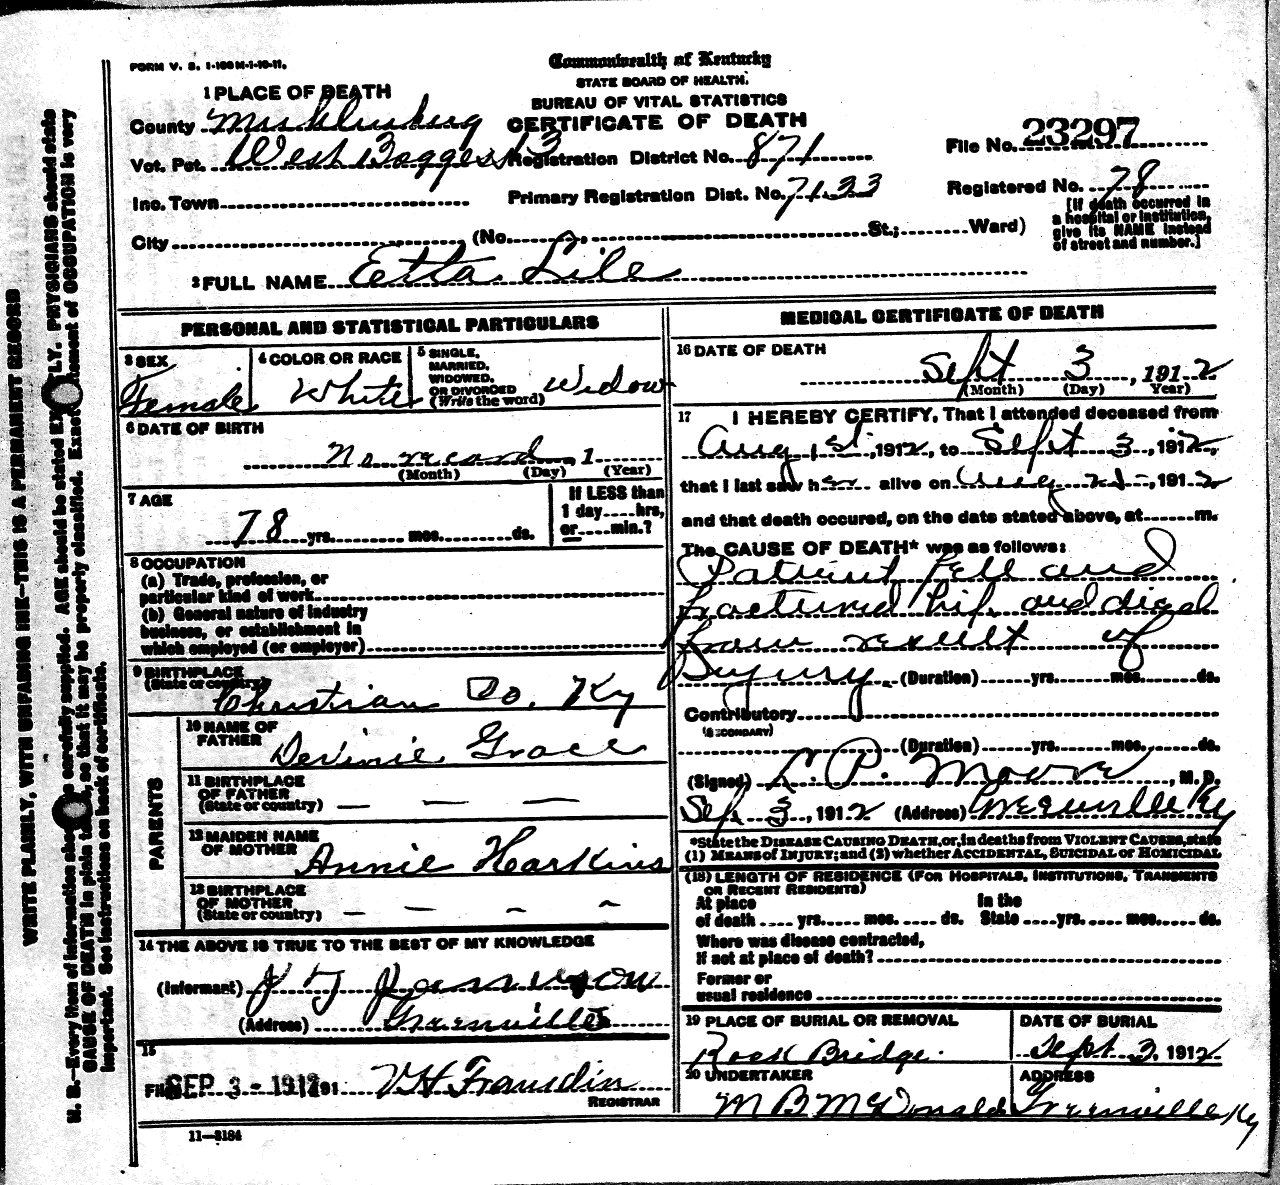 FORM V. S. 1-100M-1-10-11.
Commonwealth of Kentucky
STATE BOARD OF HEALTH.
BUREAU OF VITAL STATISTICS
CERTIFICATE OF DEATH
1 PLACE OF DEATH
County Muhlenberg
Vot. Pct. West Boggess 13 Registration District No. 871
File No. 23297
Inc. Town Primary Registration Dist. No. 7133
Registered No. 78
City (No. St.; Ward)
[If death occurred in
a hospital or institution,
give its NAME instead
of street and number.]
2 FULL NAME Etta Lile
PERSONAL AND STATISTICAL PARTICULARS
3 SEX
Female
4 COLOR OR RACE
White
5 SINGLE,
MARRIED,
WIDOWED,
OR DIVORCED
(Write the word)
Widow
6 DATE OF BIRTH
No record, 1
(Month) (Day) (Year)
7 AGE
78 yrs. mos. ds.
If LESS than
1 day hrs,
or min.?
8 OCCUPATION
(a) Trade, profession, or
particular kind of work
(b) General nature of industry
business, or establishment in
which employed (or employer)
9 BIRTHPLACE
(State or country)
Christian Co. Ky
PARENTS
10 NAME OF
FATHER
Grace
11 BIRTHPLACE
OF FATHER
(State or country) — — —
12 MAIDEN NAME
OF MOTHER
Annie Hearkins
13 BIRTHPLACE
OF MOTHER
(State or country) — — - -
14 THE ABOVE IS TRUE TO THE BEST OF MY KNOWLEDGE
(Informant)
(Address) Greenville
15
Filed SEP 3 - 1912 191 V H
REGISTRAR
11—3184
MEDICAL CERTIFICATE OF DEATH
16 DATE OF DEATH
Sept 3, 1912
(Month) (Day) Year)
17 I HEREBY CERTIFY, That I attended deceased from
Aug 1st, 1912, to Sept 3, 1912,
that I last saw her alive on Aug 21, 1912
and that death occured, on the date stated above, at m.
The CAUSE OF DEATH* was as follows:
Patient fell and
fractured hip and died
from result of
Injury. (Duration) yrs. mos. ds.
Contributory
(SECONDARY)
(Duration) yrs. mos. ds.
(Signed) L. P. Moore, M. D.
Sep 3, 1912 (Address) Greenville Ky
*State the DISEASE CAUSING DEATH, or, in deaths from VIOLENT CAUSES, state
(1) MEANS of INJURY; and (2) whether ACCIDENTAL, SUICIDAL or HOMICIDAL
(18) LENGTH OF RESIDENCE (FOR HOSPITALS, INSTITUTIONS, TRANSIENTS
OR RECENT RESIDENTS)
At place
of death yrs. mos. ds.
In the
State yrs. mos. ds.
Where was disease contracted,
If not at place of death?
Former or
usual residence
19 PLACE OF BURIAL OR REMOVAL
Rock Bridge.
DATE OF BURIAL
Sept 3, 1912
20 UNDERTAKER
M B McDonald
ADDRESS
Greenville Ky
WRITE PLAINLY, WITH UNFADING INK—THIS IS A PERMANENT RECORD
N. B.—Every item of information carefully supplied. AGE should be stated LY. PHYSICIANS should state
CAUSE OF DEATH in plain so that it may be properly classified. Exact ment of OCCUPATION is very
important. See instructions on back of certificate.